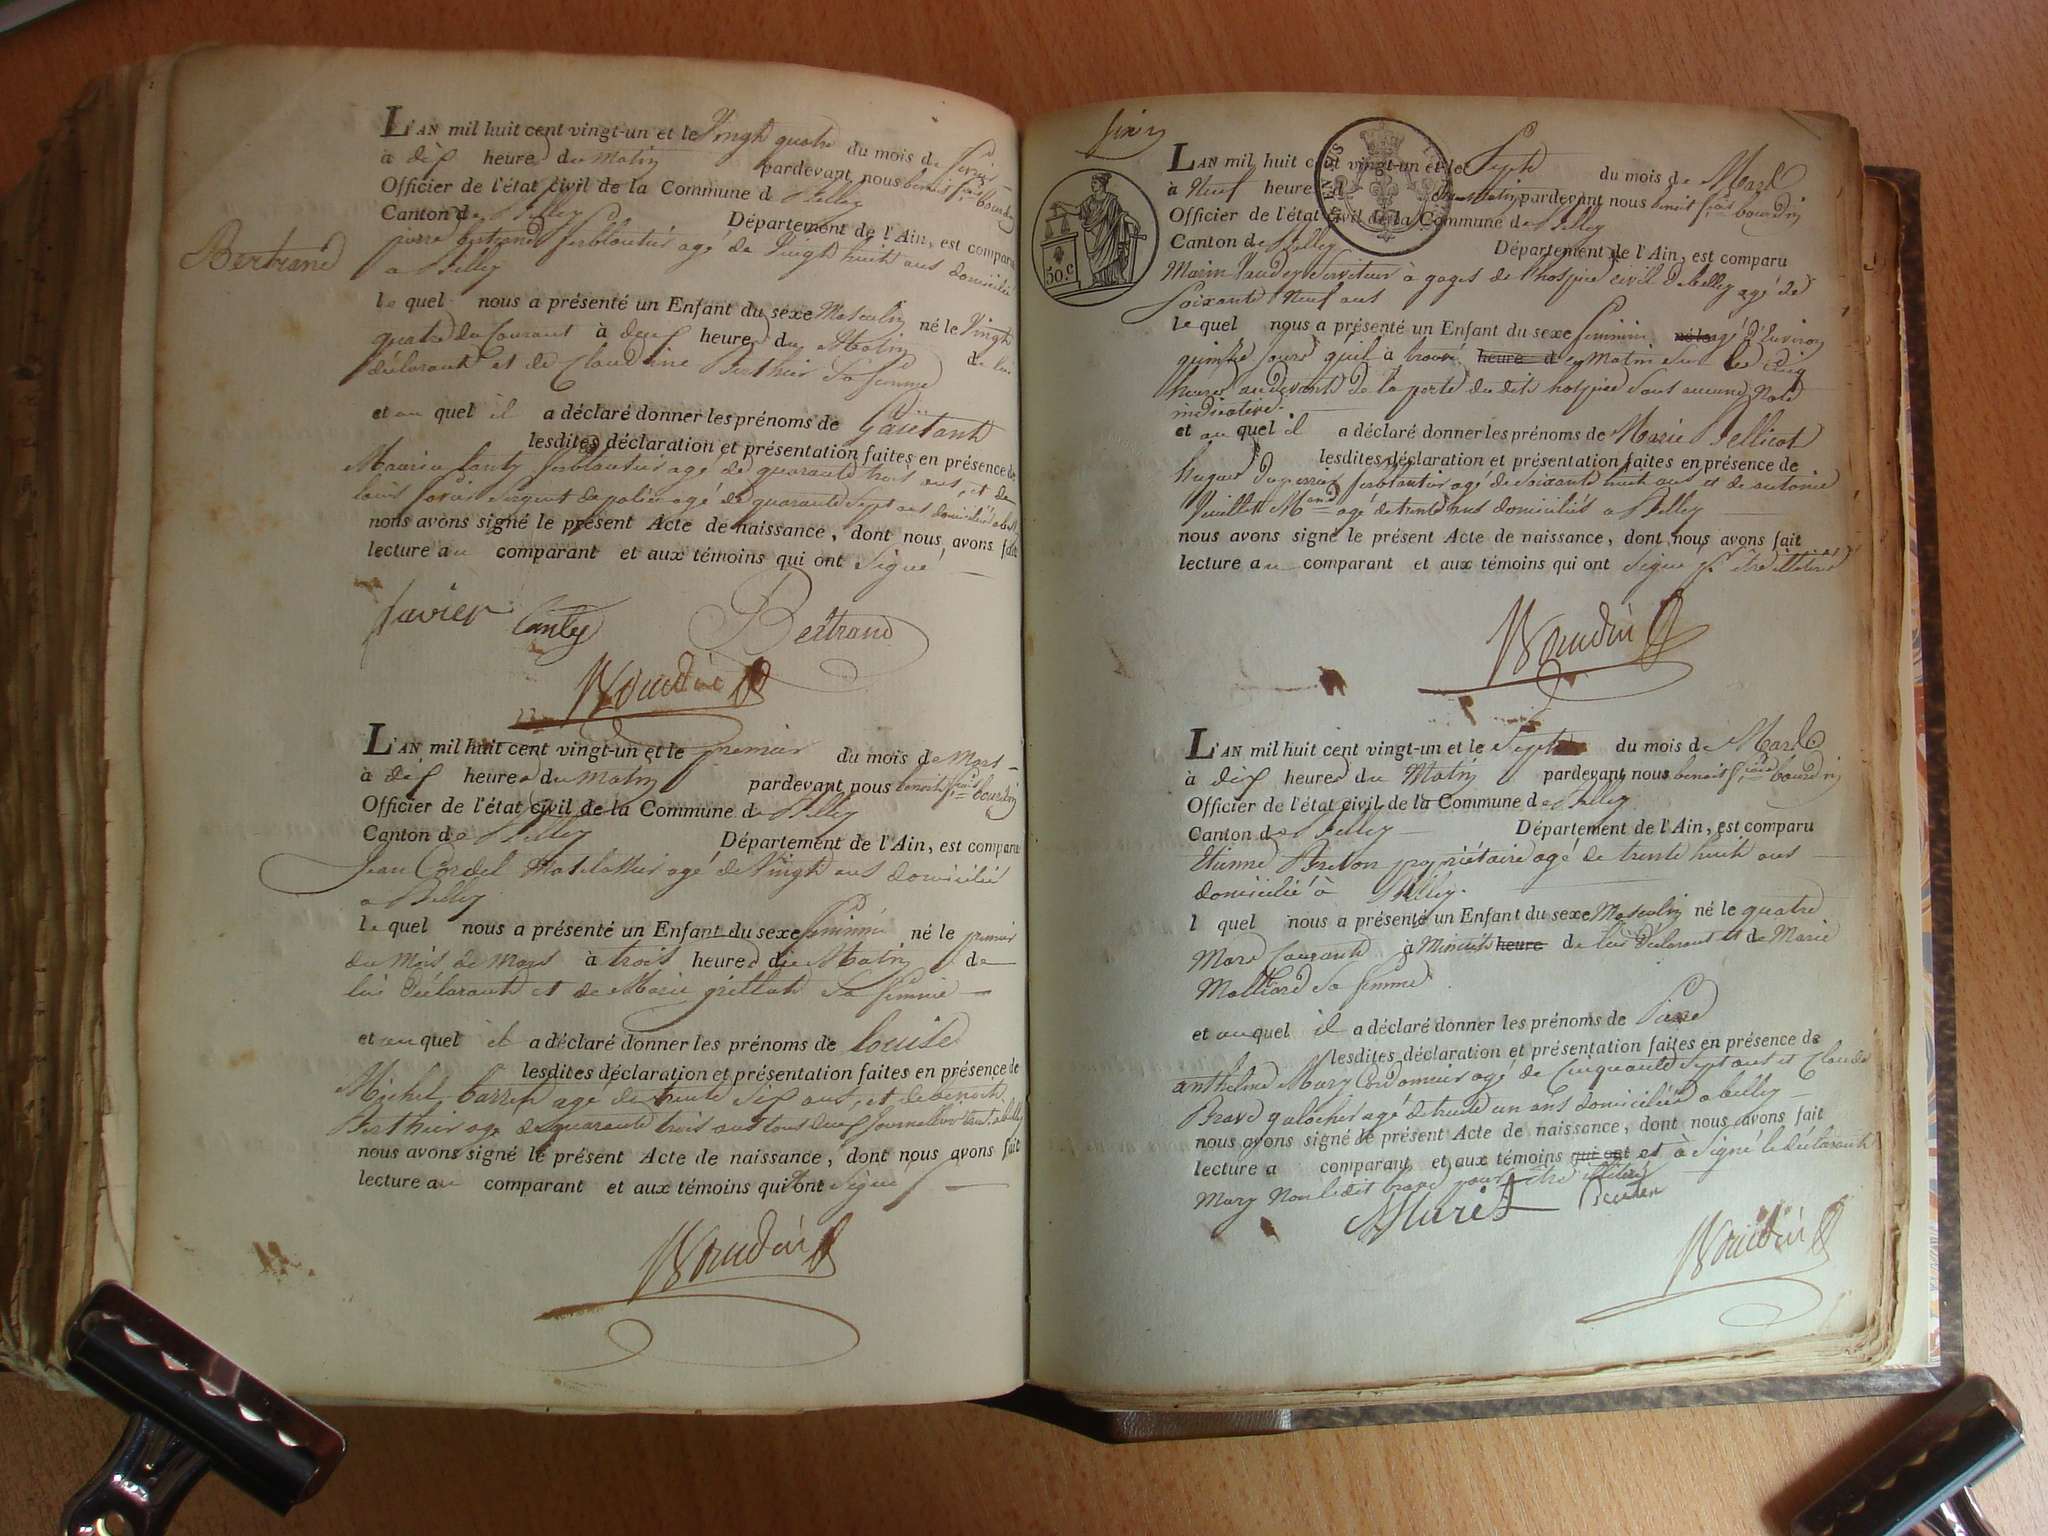 L'AN mil huit cent vingt-un et le Vingt quatre du mois de fevrier
à dix heures du Matin pardevant nous benoit f.ois bourdin
Officier de l'état civil de la Commune de Belley
Canton de Belley Département de l'Ain, est comparu
Bertrand
pierre bertrand ferblantier agé de Vingt huit ans domicilié
a Belley
le quel nous a présenté un Enfant du sexe Masculin né le Vingt
quatre du Courant à deux heures du Matin de lui
déclarant et de Claudine Berthier Sa femme
et au quel il a déclaré donner les prénoms de Gaietant
lesdites déclaration et présentation faites en présence de
Maurice Canty ferblantier agé de quarante trois ans, et de
louis Sergent de police agé de quarante Sept ans domiciliés a
nous avons signé le présent Acte de naissance, dont nous avons fait
lecture au comparant et aux témoins qui ont Signé
Canty Bertrand
Bourdin
L'AN mil huit cent vingt-un et le premier du mois de Mars
à dix heures du Matin pardevant nous benoit f.ois bourdin
Officier de l'état civil de la Commune de Belley
Canton de Belley Département de l'Ain, est comparu
Jean Cordel Matelassier agé de Vingt ans domicilié
a Belley
le quel nous a présenté un Enfant du sexe féminin né le premier
du Mois de Mars à trois heures du Matin de
lui Déclarant et de Marie grillat Sa femme
et au quel il a déclaré donner les prénoms de Louise
lesdites déclaration et présentation faites en présence de
Michel agé de trente Six ans, et de benoit
Berthier agé de quarante trois ans tous deux
nous avons signé le présent Acte de naissance, dont nous avons fait
lecture au comparant et aux témoins qui ont Signé
Bourdin
50.c
L'AN mil huit cent vingt-un et le Sept du mois de Mars
à Neuf heures du Matin pardevant nous benoit f.ois bourdin
Officier de l'état civil de la Commune de Belley
Canton de Belley Département de l'Ain, est comparu
Marin Serviteur à gages de l'hospice civil de belley agé de
Soixante Neuf ans
le quel nous a présenté un Enfant du sexe feminin né le agé d'Environ
quinze jours qu'il à trouvé heure d Matin Sur les cinq
heures audevant de la porte du dit hospice Sans aucune Note
indicative.
et au quel il a déclaré donner les prénoms de Marie Pellicot
lesdites déclaration et présentation faites en présence de
hugues Duperrier ferblantier agé de Soixante huit ans et de antoine
Vuillet M.and agé de trente ans domiciliés a Belley
nous avons signé le présent Acte de naissance, dont nous avons fait
lecture au comparant et aux témoins qui ont Signé
Bourdin
L'AN mil huit cent vingt-un et le Sept du mois de Mars
à dix heures du Matin pardevant nous benoit f.ois bourdin
Officier de l'état civil de la Commune de Belley
Canton de Belley Département de l'Ain, est comparu
Etienne Breton propriétaire agé de trente huit ans
domicilié à Belley.
l quel nous a présenté un Enfant du sexe Masculin né le quatre
Mars Courant à Minuit heure de lui Déclarant et de Marie
Molliard Sa femme
et auquel il a déclaré donner les prénoms de
lesdites déclaration et présentation faites en présence de
anthelme Mury Cordonnier agé de Cinquante Sept ans et Claude
Brave galocher agé de trente un ans domiciliés a belley
nous avons signé le présent Acte de naissance, dont nous avons fait
lecture a comparant et aux témoins qui ont et à Signé le Déclarant
Mury Non ledit brave pour être illitéré
Bourdin